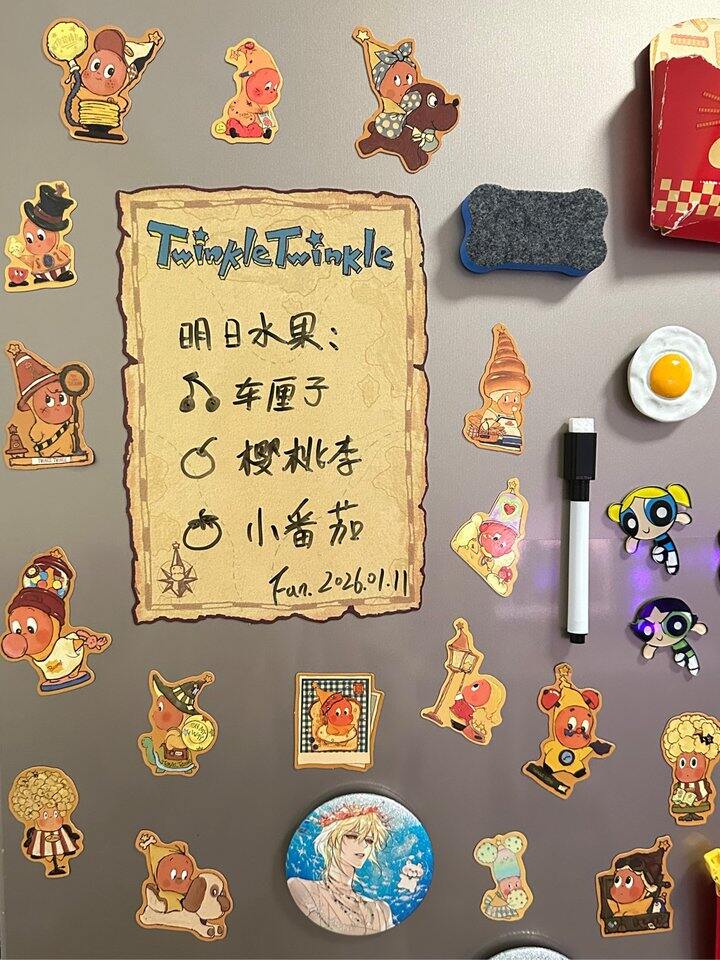 TwinkleTwinkle
明日水果：
车厘子
樱桃李
小番茄
Fun. 2026.01.11